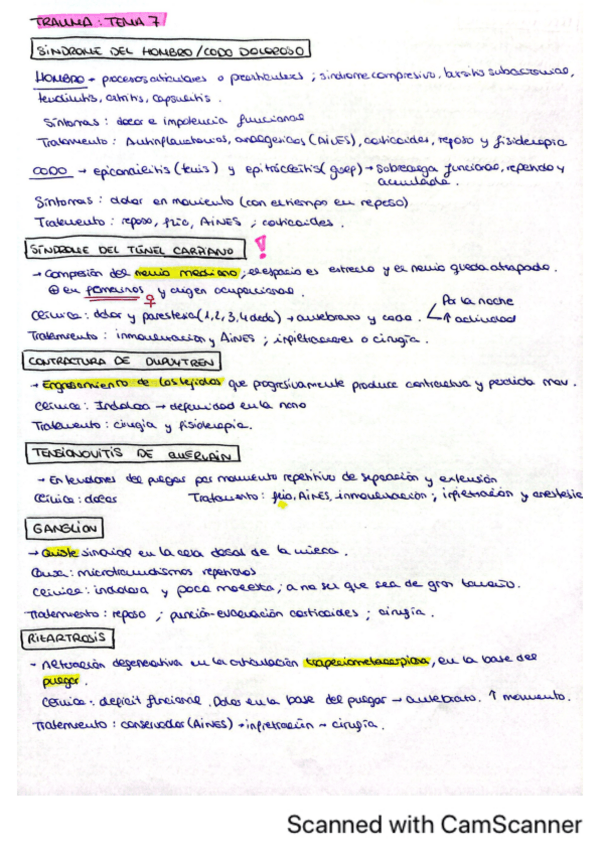 TRAUMA: TEMA 7
SÍNDROME DEL HOMBRO/CODO DOLOROSO
HOMBRO → procesos articulares o periarticulares ; síndrome compresivo, bursitis subacromial,
tendinitis, artritis, capsulitis.
Síntomas: dolor e impotencia funcional
Tratamiento: Antinflamatorios, analgésicos (AINES), corticoides, reposo y fisioterapia
CODO → epicondilitis (tenis) y epitrocleitis (golf) → sobrecarga funcional, repetida y
acumulada.
Síntomas: dolor en movimiento (con el tiempo en reposo)
Tratamiento: reposo, frío, AINES ; corticoides.
SÍNDROME DEL TÚNEL CARPIANO !
→ Compresión del nervio mediano ; el espacio es estrecho y el nervio queda atrapado.
⊕ en femeninos ♀ y origen ocupacional.
Clínica: dolor y parestesia (1,2,3,4 dedo) → antebrazo y codo. Por la noche
↑ actividad
Tratamiento: inmovilización y AINES ; infiltraciones o cirugía.
CONTRACTURA DE DUPUYTREN
→ Engrosamiento de los tejidos que progresivamente produce contractura y pérdida mov.
Clínica: Indolora → deformidad en la mano
Tratamiento: cirugía y fisioterapia.
TENSIONOVITIS DE QUERVAIN
→ En tendones del pulgar por movimiento repetitivo de separación y extensión
Clínica: dolor Tratamiento: frío, AINES, inmovilización ; infiltración y anestesia
GANGLION
→ Quiste sinovial en la cara dorsal de la muñeca.
Causa: microtraumatismos repetidos
Clínica: indolora y poco molesta ; a no ser que sea de gran tamaño.
Tratamiento: reposo ; punción-evacuación corticoides ; cirugía.
RIZARTROSIS
→ Alteración degenerativa en la articulación trapeciometacarpiana, en la base del
pulgar.
Clínica: déficit funcional. Dolor en la base del pulgar → antebrazo. ↑ movimiento.
Tratamiento: conservador (AINES) → infiltración → cirugía.
Scanned with CamScanner